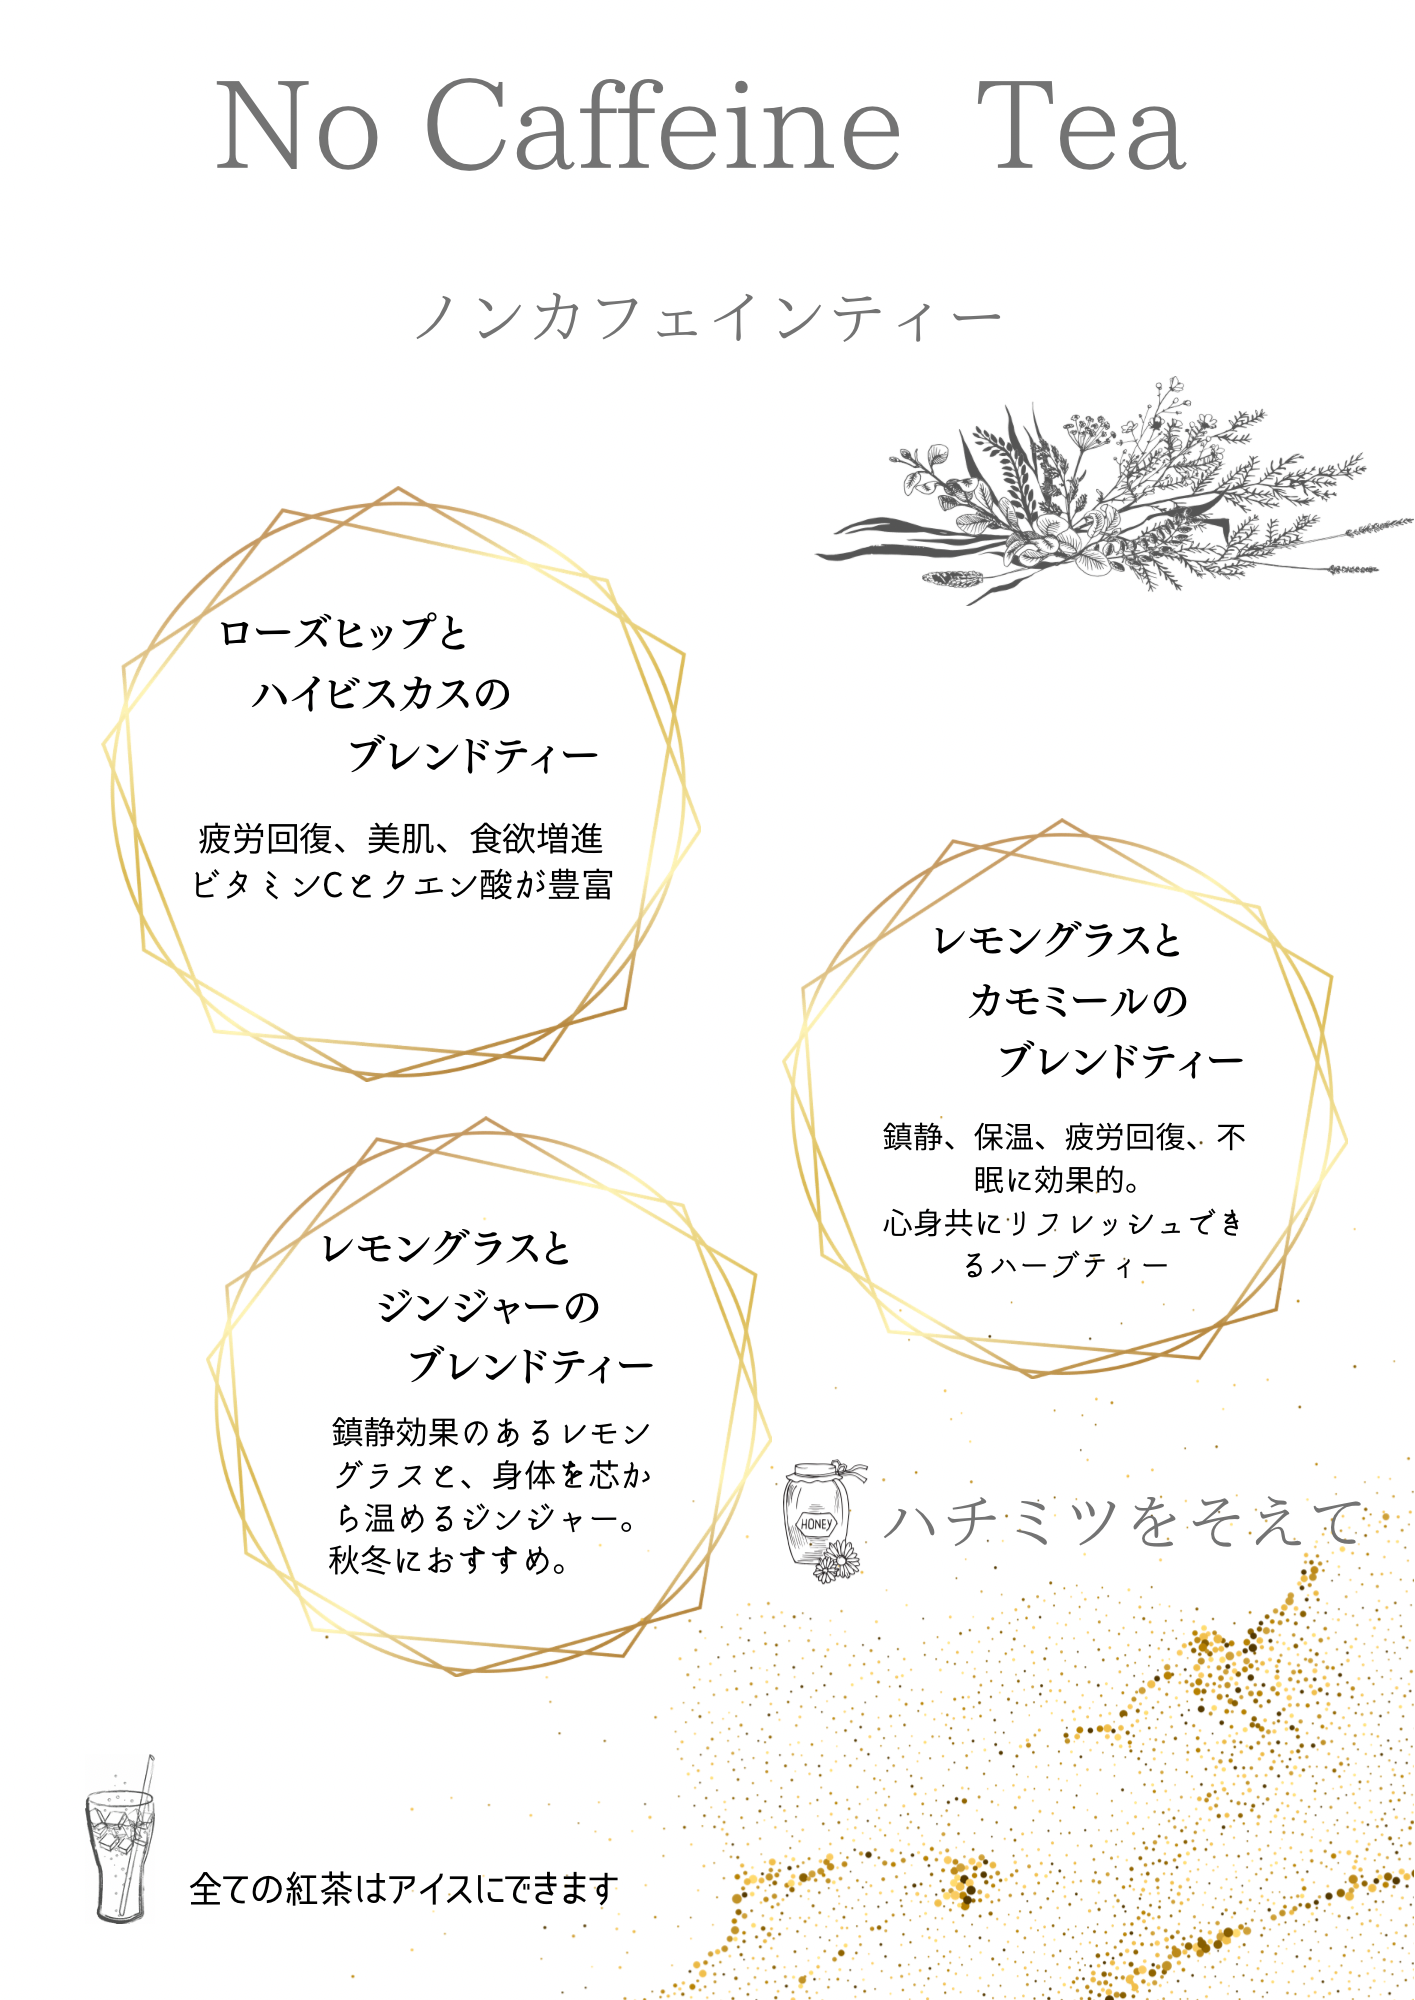 No Caffeine Tea
ノンカフェインティー
ローズヒップと
ハイビスカスの
ブレンドティー
疲労回復、美肌、食欲増進
ビタミンCとクエン酸が豊富
レモングラスと
カモミールの
ブレンドティー
鎮静、保温、疲労回復、不
眠に効果的。
心身共にリフレッシュでき
るハーブティー
レモングラスと
ジンジャーの
ブレンドティー
鎮静効果のあるレモン
グラスと、身体を芯か
ら温めるジンジャー。
秋冬におすすめ。
HONEY
ハチミツをそえて
全ての紅茶はアイスにできます